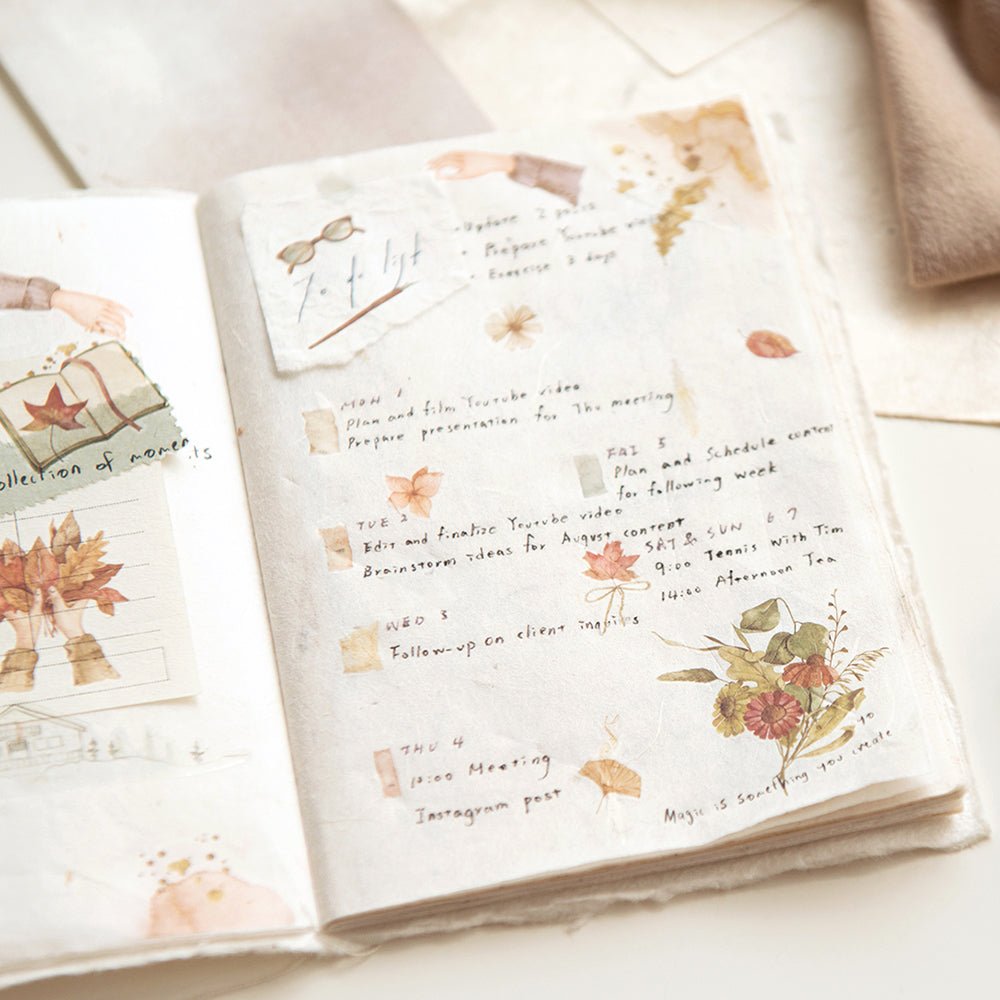 collection of moments
To do list
• Update 2 posts
• Prepare Youtube video
• Exercise 3 days
MON 1
Plan and film Youtube video
Prepare presentation for Thu meeting
TUE 2
Edit and finalize Youtube video
Brainstorm ideas for August content
WED 3
Follow-up on client inquiries
THU 4
10:00 Meeting
Instagram post
FRI 5
Plan and Schedule content
for following week
SAT & SUN 6 7
9:00 Tennis with Tim
14:00 Afternoon Tea
Magic is something you create